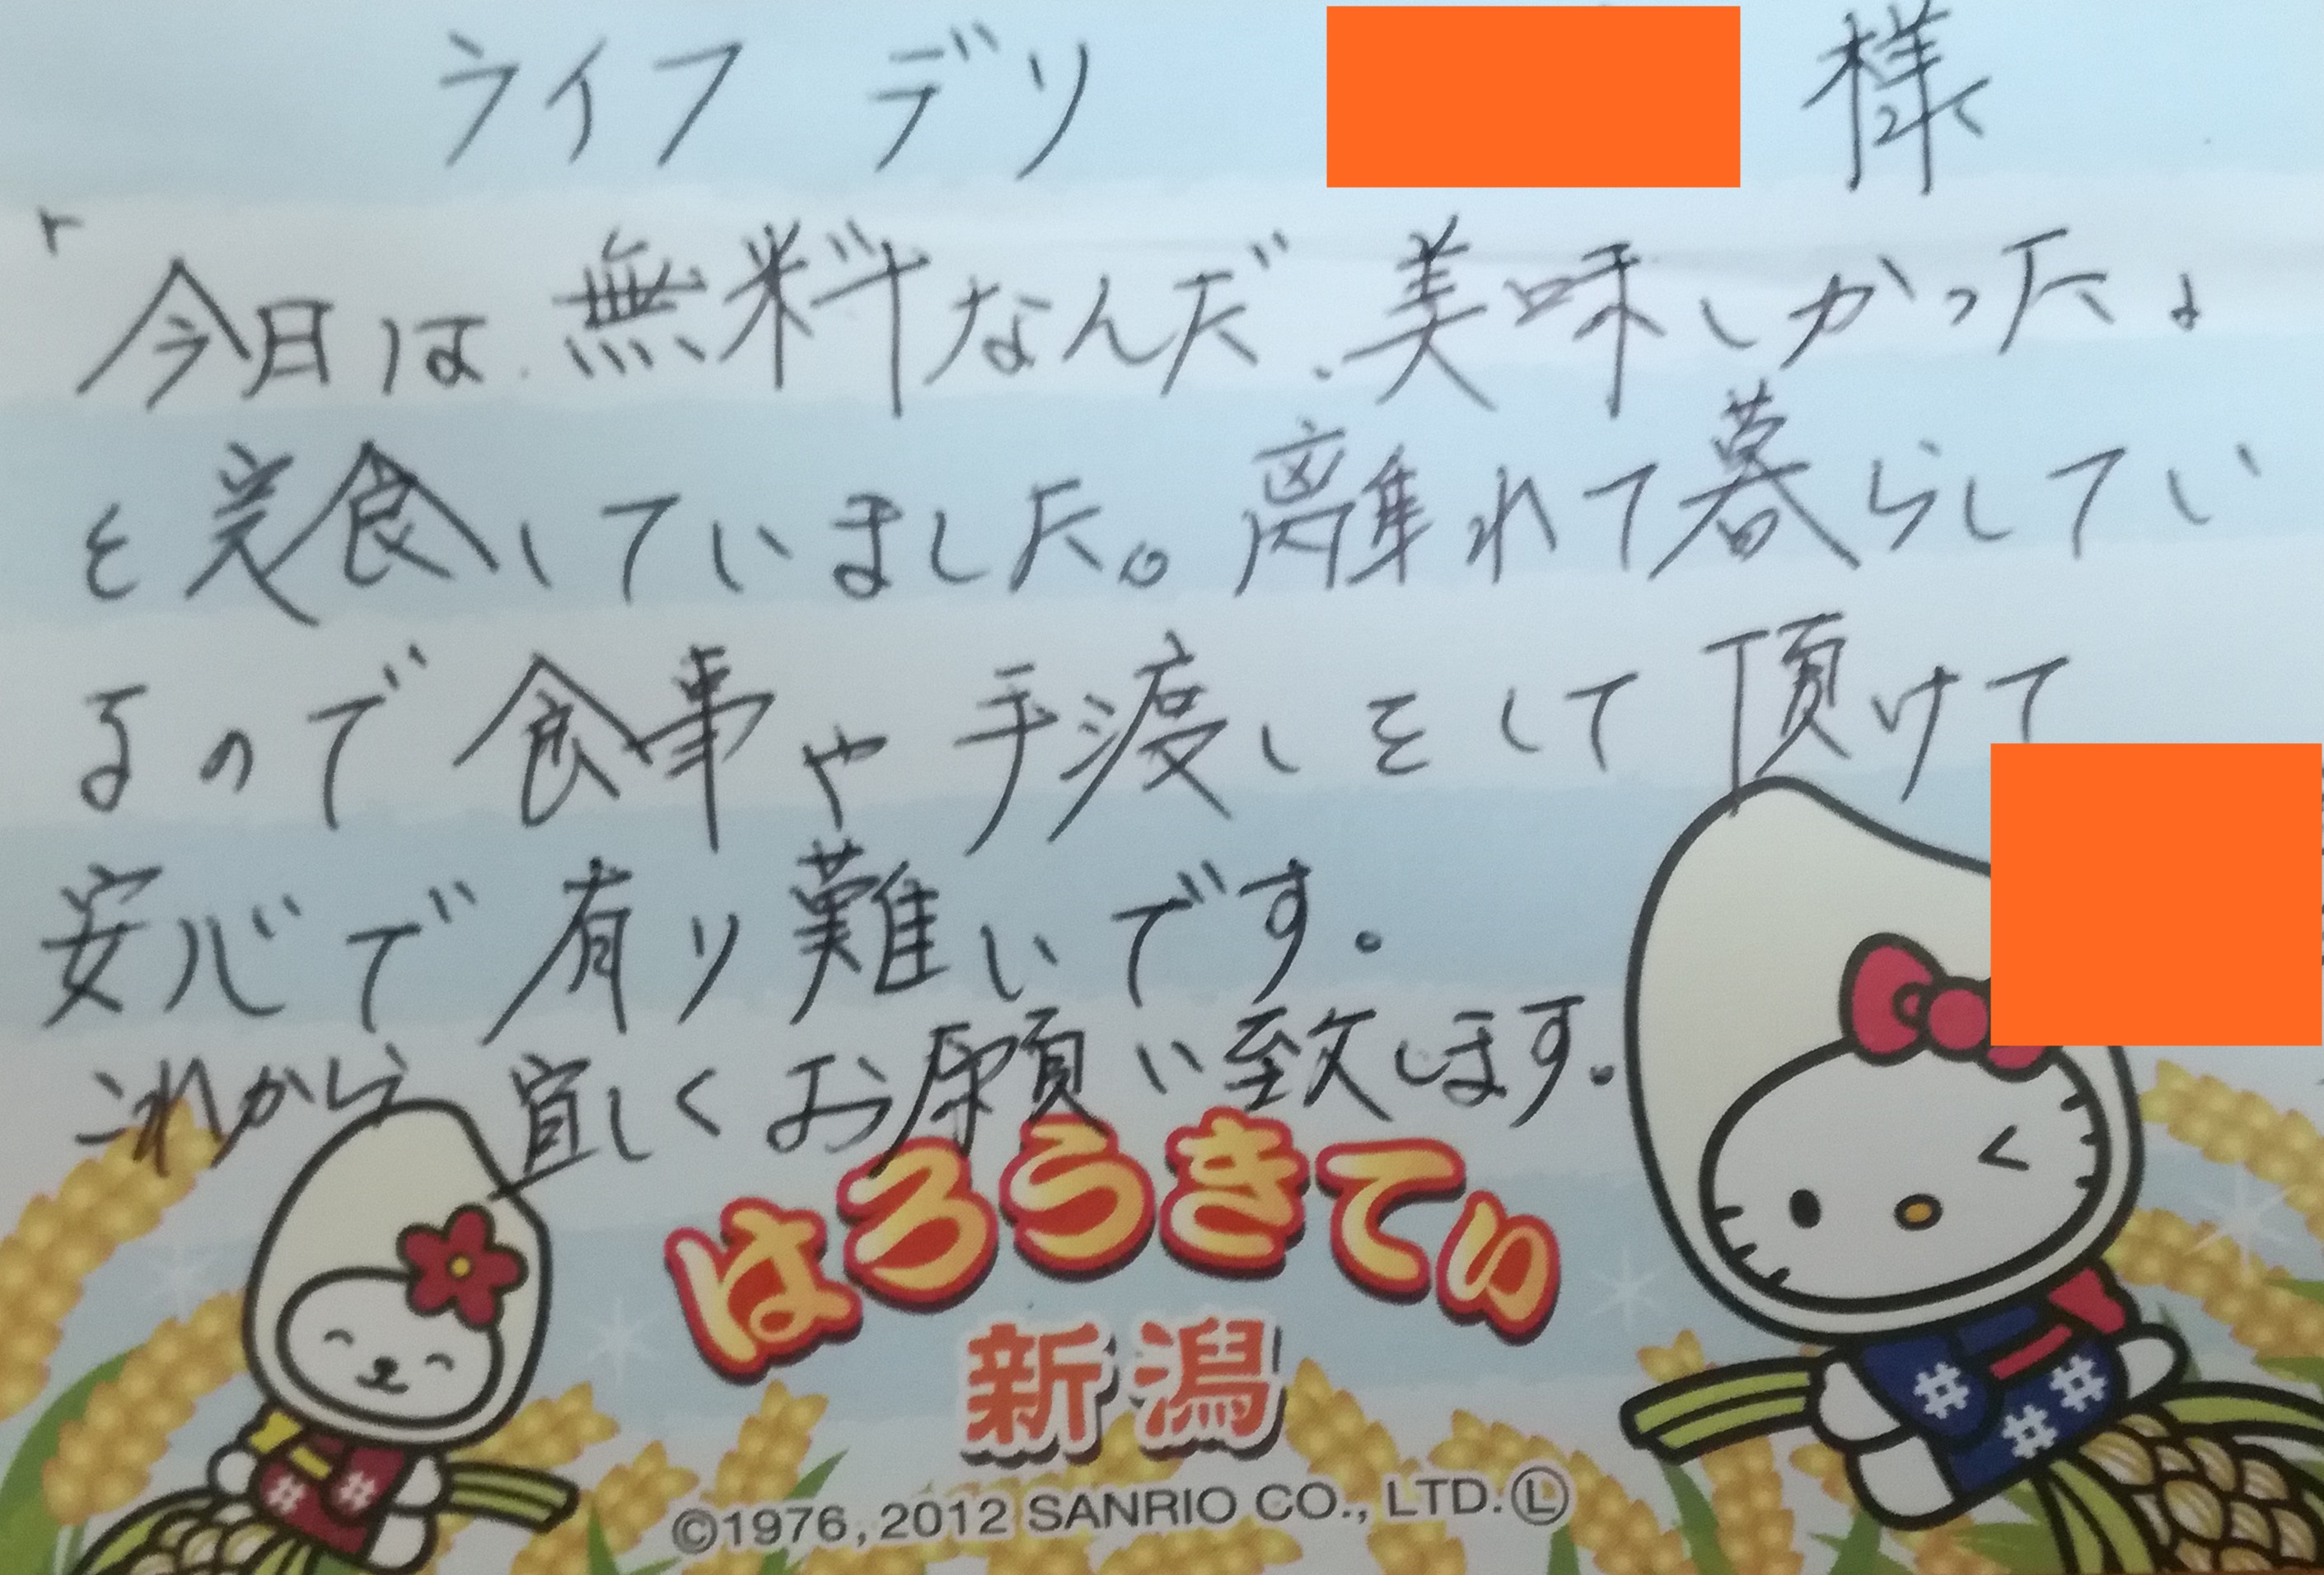 ライフ デリ 様
「今日は無料なんだ、美味しかったよ
と完食していました。離れて暮らしてい
るので食事や手渡しをして頂けて
安心で有り難いです。
これから宜しくお願い致します。
はろうきてぃ
新潟
©1976,2012 SANRIO CO., LTD.Ⓛ